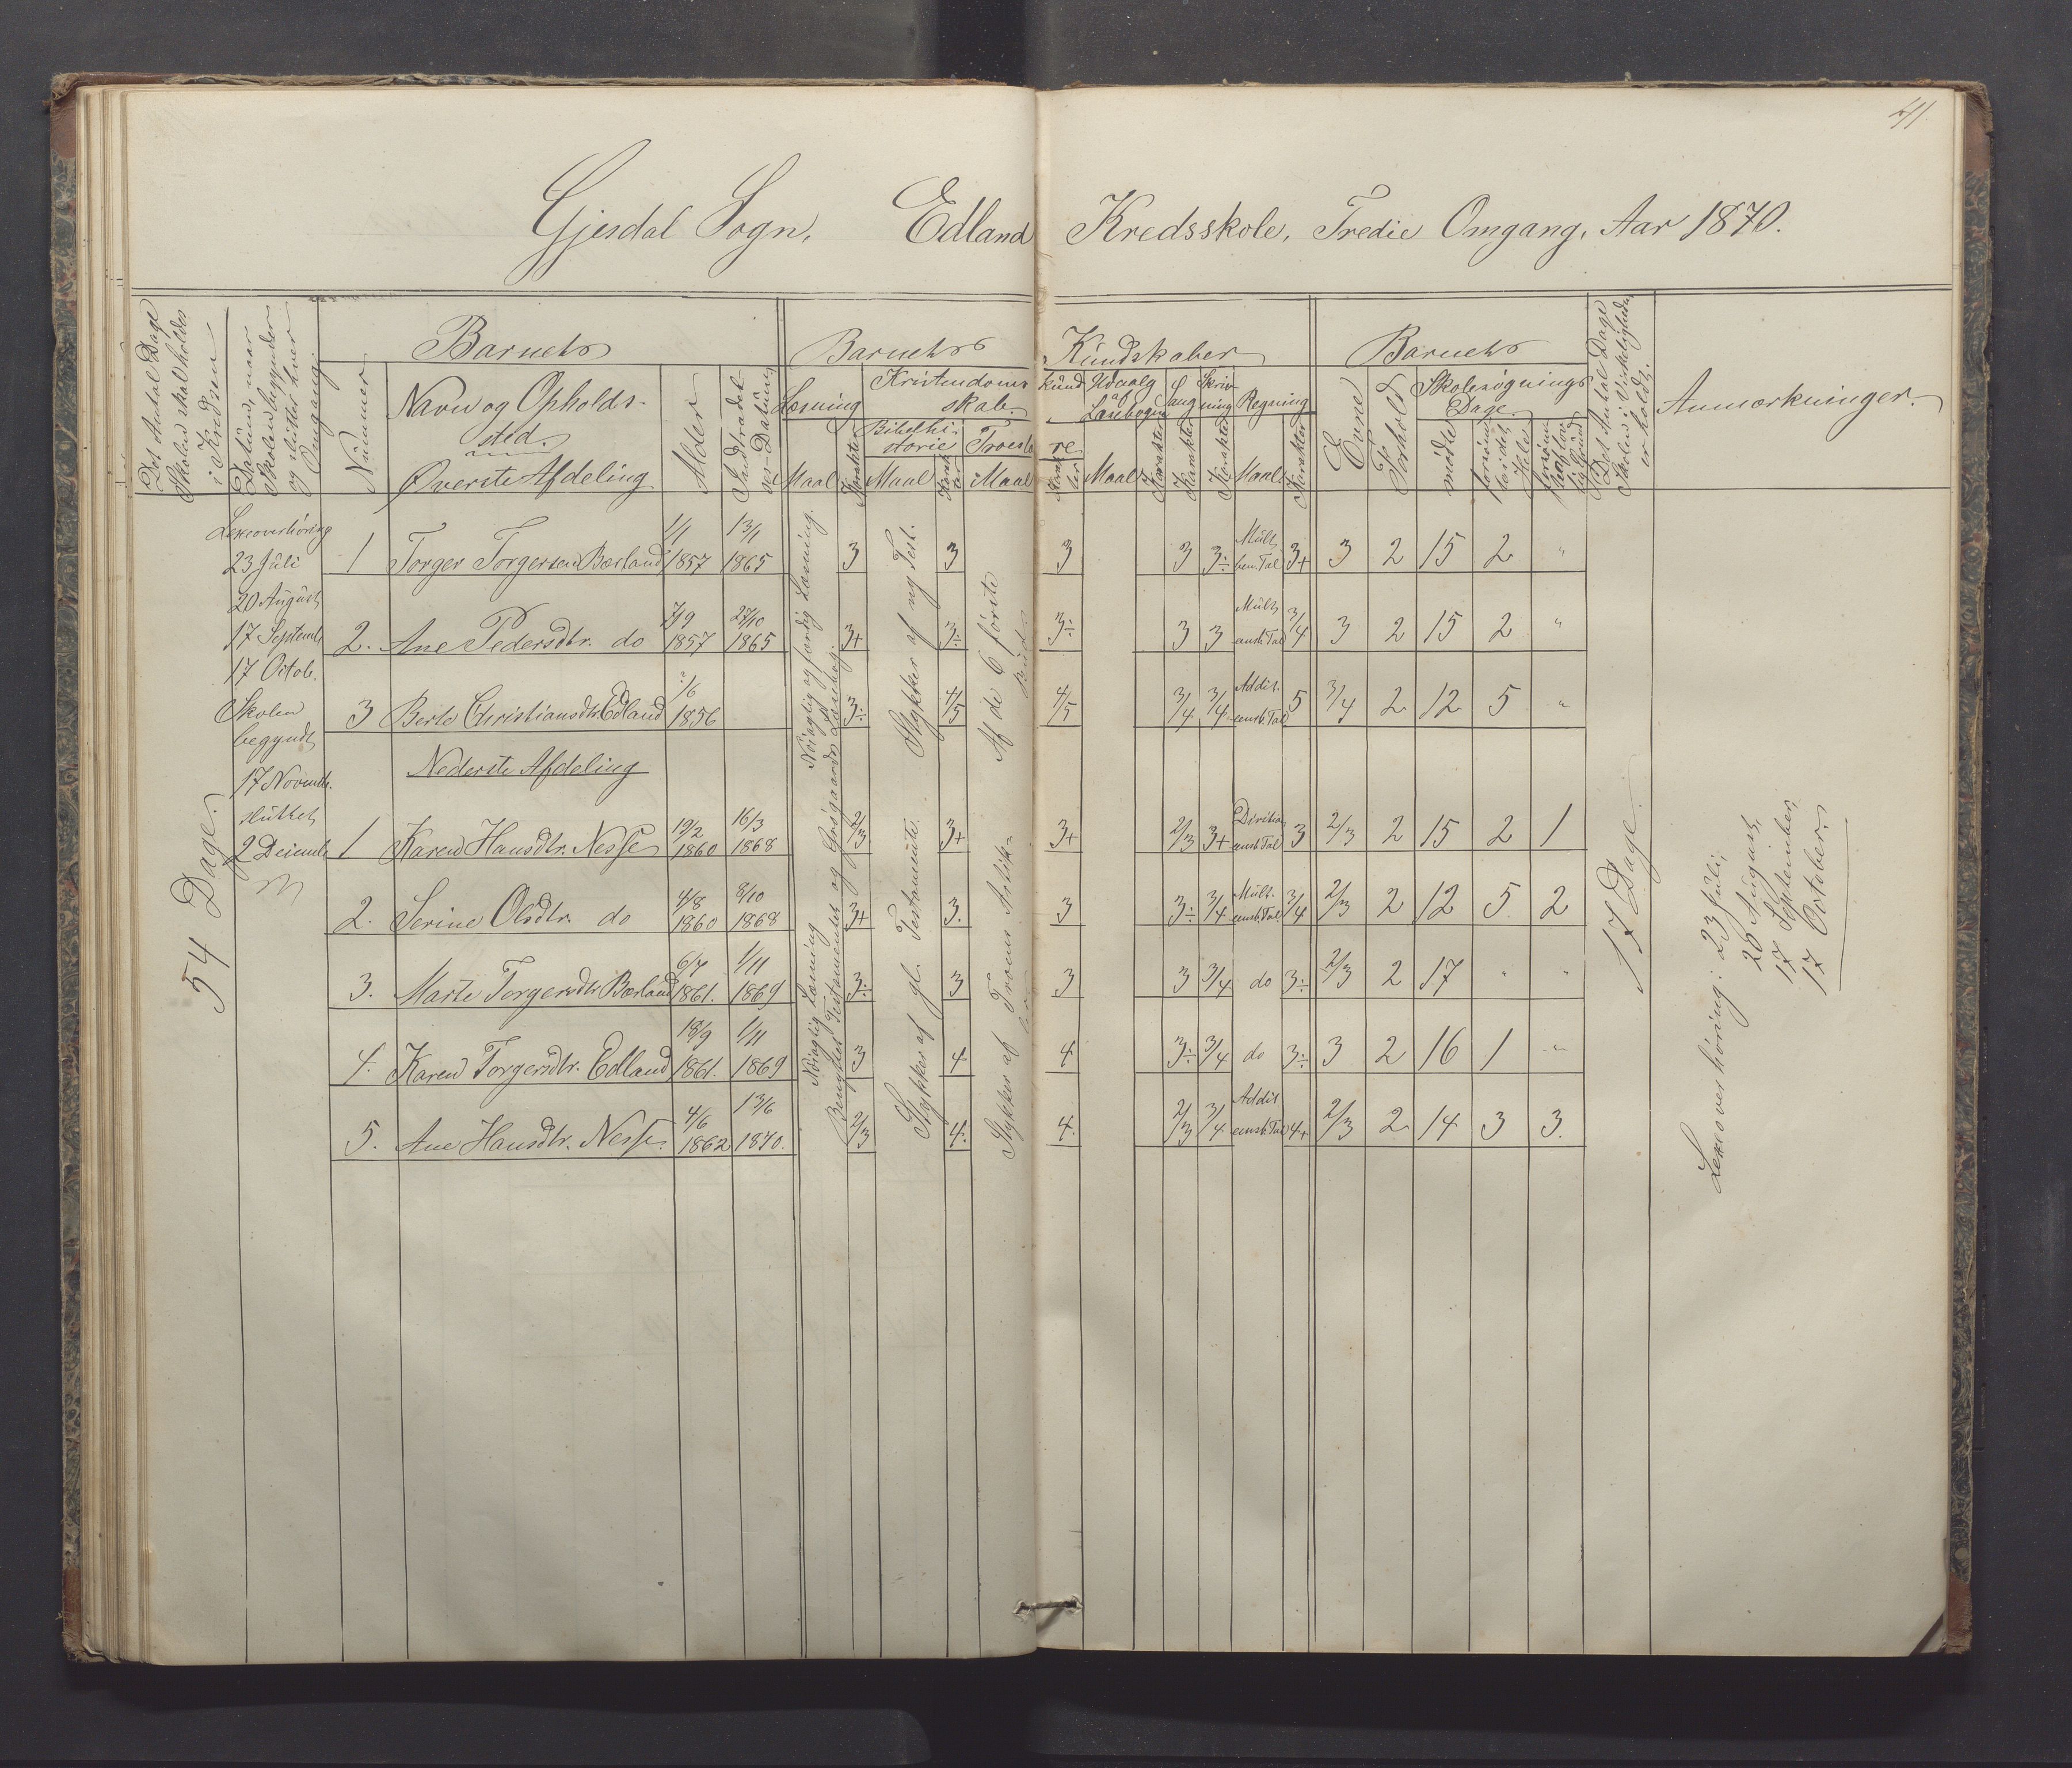 41
Gjesdal Sogn, Edland Kredsskole, Tredie Omgang, Aar 1870.
Det Antal Dage Skolen skal holdes i Kredsen
Datum, naar Skolen begynder og slutter hver Omgang.
Barnets
Nummer
Navn og Opholdssted.
Øverste Afdeling
Alder
Indtrædelses-Datum
Barnets Kundskaber
Læsning
Maal
Karakter
Kristendomskundskab.
Bibelhistorie
Maal
Karakter
Troeslære
Maal
Karakter
Udvalg af Læsebogen
Maal
Karakter
Sang
Karakter
Skrivning
Karakter
Regning
Maal
Karakter
Barnets
Evne
Forhold
Skolesøgnings Dage.
mødte
forsømte i det Hele
forsømte af lovlig Grund
Det Antal Dage Skolen i Virkeligheden er holdt.
Anmærkninger.
54 Dage.
Lexeoverhøring
23 Juli
20 August
17 Septemb.
17 Octob.
Skolen
begyndt
17 Novemb.
sluttet
2 Decemb.
1 Torger Torgersen Bærland 1/1 1857 13/1 1865 3 3 3 3 3÷ Mult. ben. Tal 3+ 3 2 15 2 "
2. Ane Pedersdtr. do 7/9 1857 27/10 1865 3+ 3÷ 3÷ 3 3 Mult. ensb. Tal 3/4 3 2 15 2 "
3 Berte Christiansdtr. Edland /6 1856 3÷ 4/5 4/5 3/4 3/4 Addit. ensb. Tal 5 3/4 2 12 5 "
Nederste Afdeling
1 Karen Hansdtr. Nesse 19/2 1860 16/3 1868 2/3 3+ 3+ 2/3 3+ Division ensb. Tal 3 2/3 2 15 2 1
2. Serine Olsdtr. do 4/8 1860 8/10 1868 3+ 3. 3 3÷ 3/4 Mult. ensb. Tal 3/4 2/3 2 12 5 2
3. Marte Torgersdtr. Bærland 6/7 1861. 1/11 1869 3÷ 3 3 3 3/4 do 3÷ 2/3 2 17 " "
4. Karen Torgersdtr. Edland 18/9 1861. 1/11 1869 3 4 4 3÷ 3/4 do 3÷ 3 2 16 1 "
5. Ane Hansdtr. Nesse. 4/6 1862 13/6 1870. 2/3 4. 4. 2/3 3/4 Addit. ensb. Tal 4+ 2/3 2 14 3 3.
Nøiagtig og færdig Læsning.
Nøiagtig Læsning
Benyttet Testamentet og Grøgaards Læsebog.
Stykker af ny Test.
Stykker af gl. Testamente.
Af de 6 første
Stykker af Troens Artikler
17 Dage.
Lexeoverhøring: 23 Juli,
20 August,
17 September,
17 October.